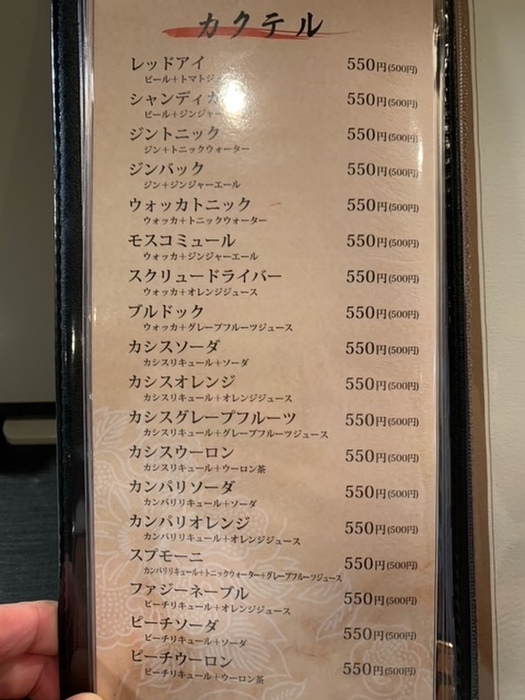 カクテル
レッドアイ 550円(500円)
ビール+トマトジュ
シャンディガ 550円(500円)
ビール+ジンジャー
ジントニック 550円(500円)
ジン+トニックウォーター
ジンバック 550円(500円)
ジン+ジンジャーエール
ウォッカトニック 550円(500円)
ウォッカ+トニックウォーター
モスコミュール 550円(500円)
ウォッカ+ジンジャーエール
スクリュードライバー 550円(500円)
ウォッカ+オレンジジュース
ブルドック 550円(500円)
ウォッカ+グレープフルーツジュース
カシスソーダ 550円(500円)
カシスリキュール+ソーダ
カシスオレンジ 550円(500円)
カシスリキュール+オレンジジュース
カシスグレープフルーツ 550円(500円)
カシスリキュール+グレープフルーツジュース
カシスウーロン 550円(500円)
カシスリキュール+ウーロン茶
カンパリソーダ 550円(500円)
カンパリリキュール+ソーダ
カンパリオレンジ 550円(500円)
カンパリリキュール+オレンジジュース
スプモーニ 550円(500円)
カンパリリキュール+トニックウォーター+グレープフルーツジュース
ファジーネーブル 550円(500円)
ピーチリキュール+オレンジジュース
ピーチソーダ 550円(500円)
ピーチリキュール+ソーダ
ピーチウーロン 550円(500円)
ピーチリキュール+ウーロン茶